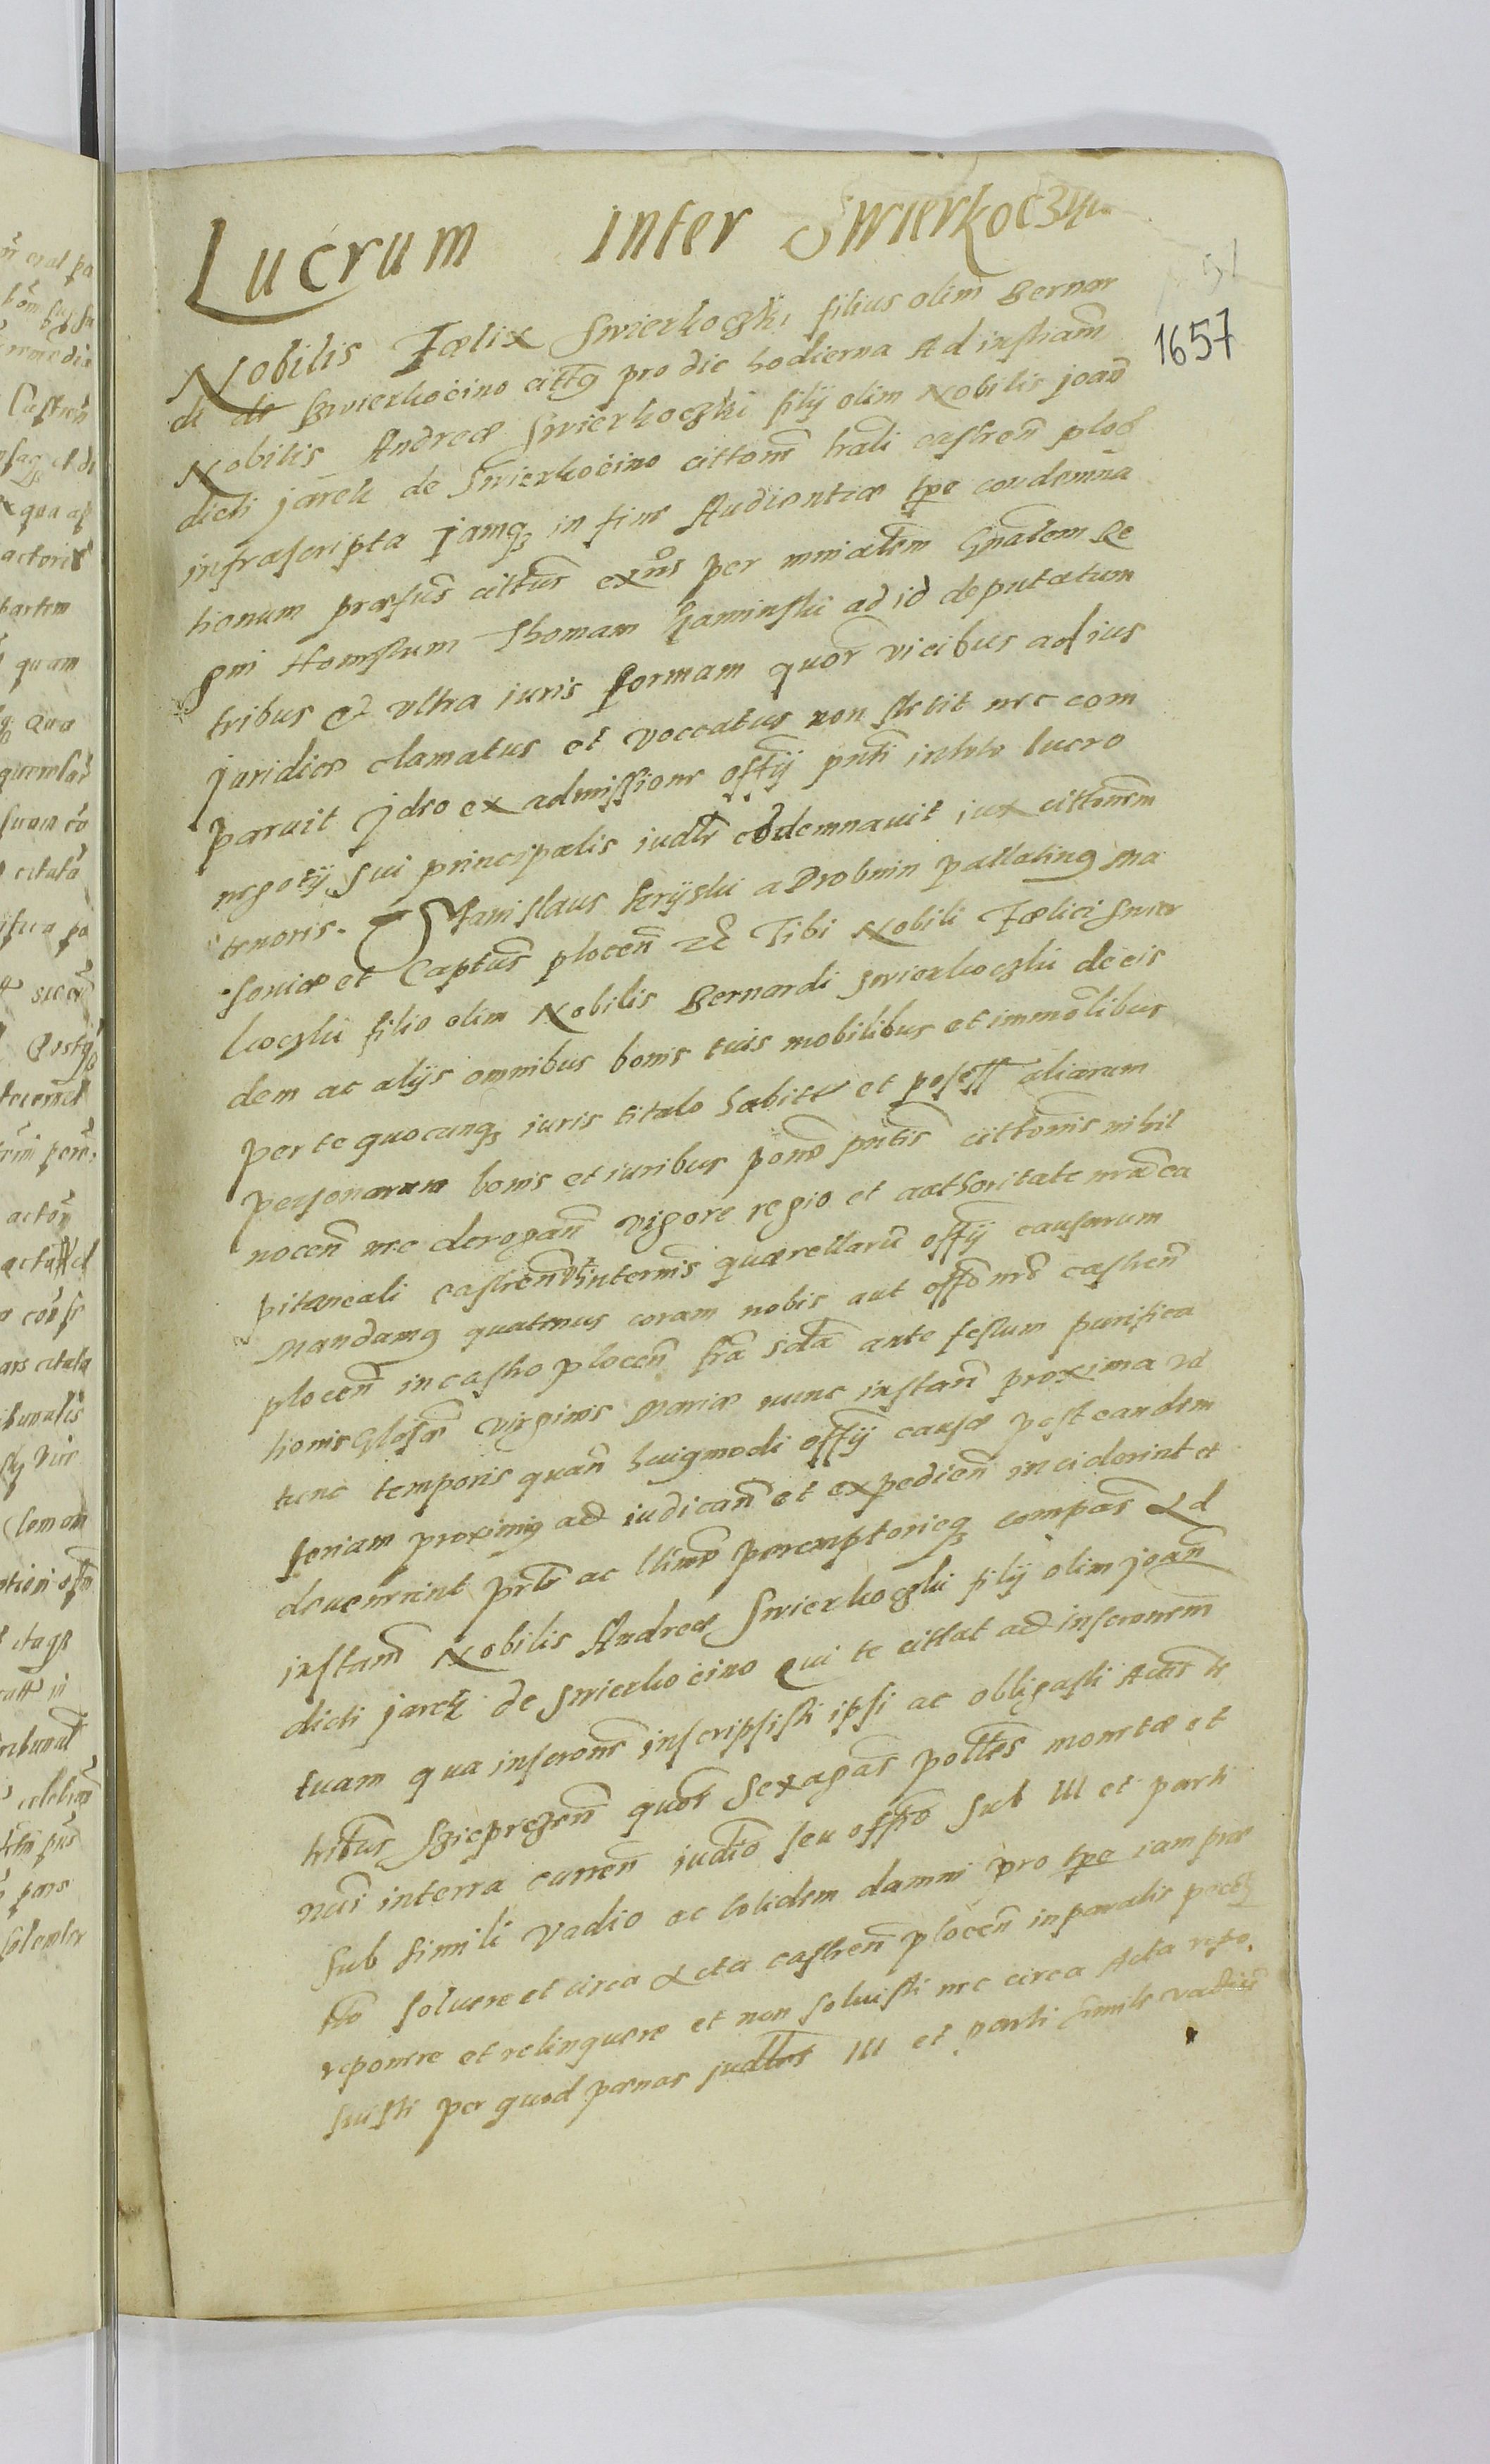 Lucrum inter Swierkoczky
51
1657
Nobilis Fœlix Swierkoczki filius olim Bernar
di de Swierkocino cittꝰ pro die hodierna Ad instiam̃
Nobilis Andreæ Swierkoczki filij olim Nobilis joañ
dicti jarek de Swierkocino cittom̃ trali castren̄ ploc̄
infrascripta jamqȝ in fine Audientiæ tpe condemna
tionum præfus̄ cittus̄ exñs per minialem̄ Gnalem Re
gni Honestum Thomam Kaminski ad id deputatum
tribus et vltra iuris formam quor̄ vicibus ad ius
juridice clamatus et voccatus non stetit nec com
paruit jdeo ex admissione offij pnti in toto lucro
negotij sui principalis iudlr cōdemnauit iux cittonem̄
tenoris. Stanislaus Kryski a Drobnin pallatinꝰ Ma
souiæ et Captus̄ plocen̄ etc̄ Tibi Nobili Fœlici Swier
koczki filio olim Nobilis Bernardi Swierkoczki de eis
dem ac alijs omnibus bonis tuis mobilibus et immōlibus
per te quocunqȝ iuris titulo habitt et posess aliarum
personarum bonis et iuribus ꝑone pntis cittonis nihil
nocen̄ nec derogan̄ vigore regio et authoritate nrā ca
pitaneali castren̄ interm̄s quærellarū offij causarum
Mandamꝰ quatenus coram nobis aut offo nrō castren̄
plocen̄ in castro plocen̄ fra 2da ante festum purifica
tionis Glosæ virginis Mariæ nunc instan̄ proxima vel
tunc temporis quan̄ huiꝰmodi offij causæ post eandem
feriam proximiꝰ ad iudican̄ et expedien̄ inciderint et
deuenerint prlr ac llime peremptorieqȝ compas̄ Ad
instam̄ Nobilis Andreæ Swierkoczki filij olim joan̄
dicti jarek de Swierkocino Qui te cittat ad inscronem̄
tuam qua inscrone inscripsisti ipsi ac obligasti Actis te
tribus sexagen̄ quor̄ sexagas̄ polles monetæ et
nūi in terra curren̄ iudio seu offo sub III et parti
sub simili vadio ac totidem damni pro tpe iam præ
tto soluere et circa Acta castren̄ plocen̄ in paratis pecȝ
reponere et relinquere et non soluisti nec circa Acta repo.
suisti per quod pœnas judlres III et parti simile vadiū